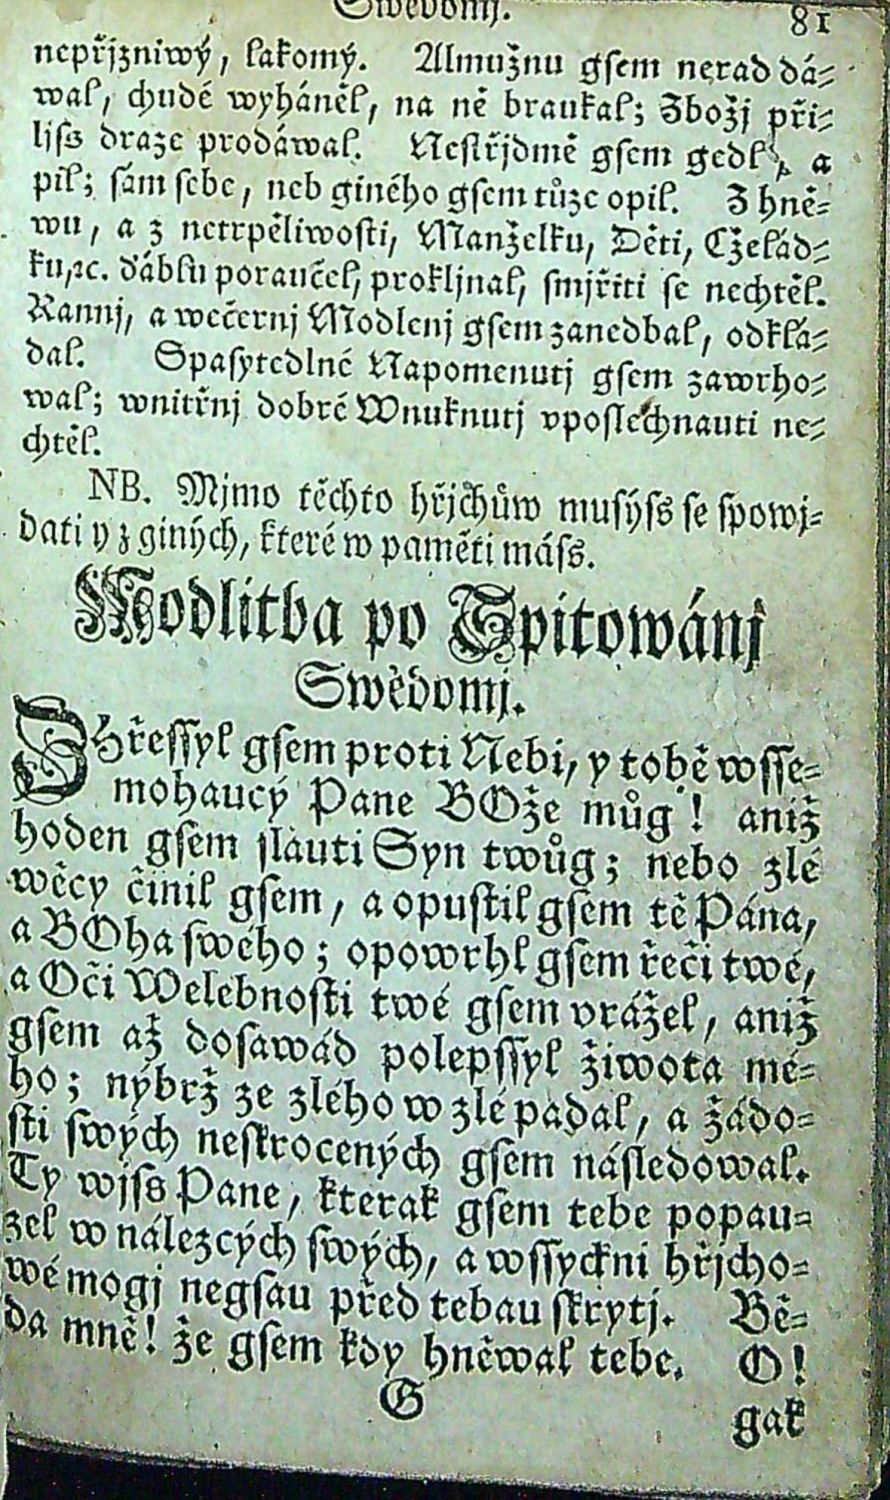 Swědomj. 81
nepřjzniwý, lakomý. Almužnu gsem nerad dá-
wal, chudé wyháněl, na ně braukal; Zbožj při-
ljss draze prodáwal. Nestřjdmě gsem gedl, a
pil; sám sebe, neb giného gsem tůze opil. Z hně-
wu, a z netrpěliwosti, Manželku, Děti, Cželád-
ku, ꝛc. ďáblu poraučel, prokljnal, smjřiti se nechtěl.
Rannj, a wečernj Modlenj gsem zanedbal, odklá-
dal. Spasytedlné Napomenutj gsem zawrho-
wal; wnitřnj dobré Wnuknutj vposlechnauti ne-
chtěl.
NB. Mjmo těchto hřjchůw musýss se spowj-
dati y z giných, které w paměti máss.
Modlitba po Zpitowánj
Swědomj.
ZHřessyl gsem proti Nebi, y tobě wsse-
mohaucý Pane BOže můg! aniž
hoden gsem slauti Syn twůg; nebo zlé
wěcy činil gsem, a opustil gsem tě Pána,
a BOha swého; opowrhl gsem řeči twé,
a Oči Welebnosti twé gsem vrážel, aniž
gsem až dosawád polepssyl žiwota mé-
ho; nýbrž ze zlého w zlé padal, a žádo-
sti swých neskrocených gsem následowal.
Ty wjss Pane, kterak gsem tebe popau-
zel w nálezcých swých, a wssyckni hřjcho-
wé mogj negsau před tebau skrytj. Bě-
da mně! že gsem kdy hněwal tebe. O!
G gak